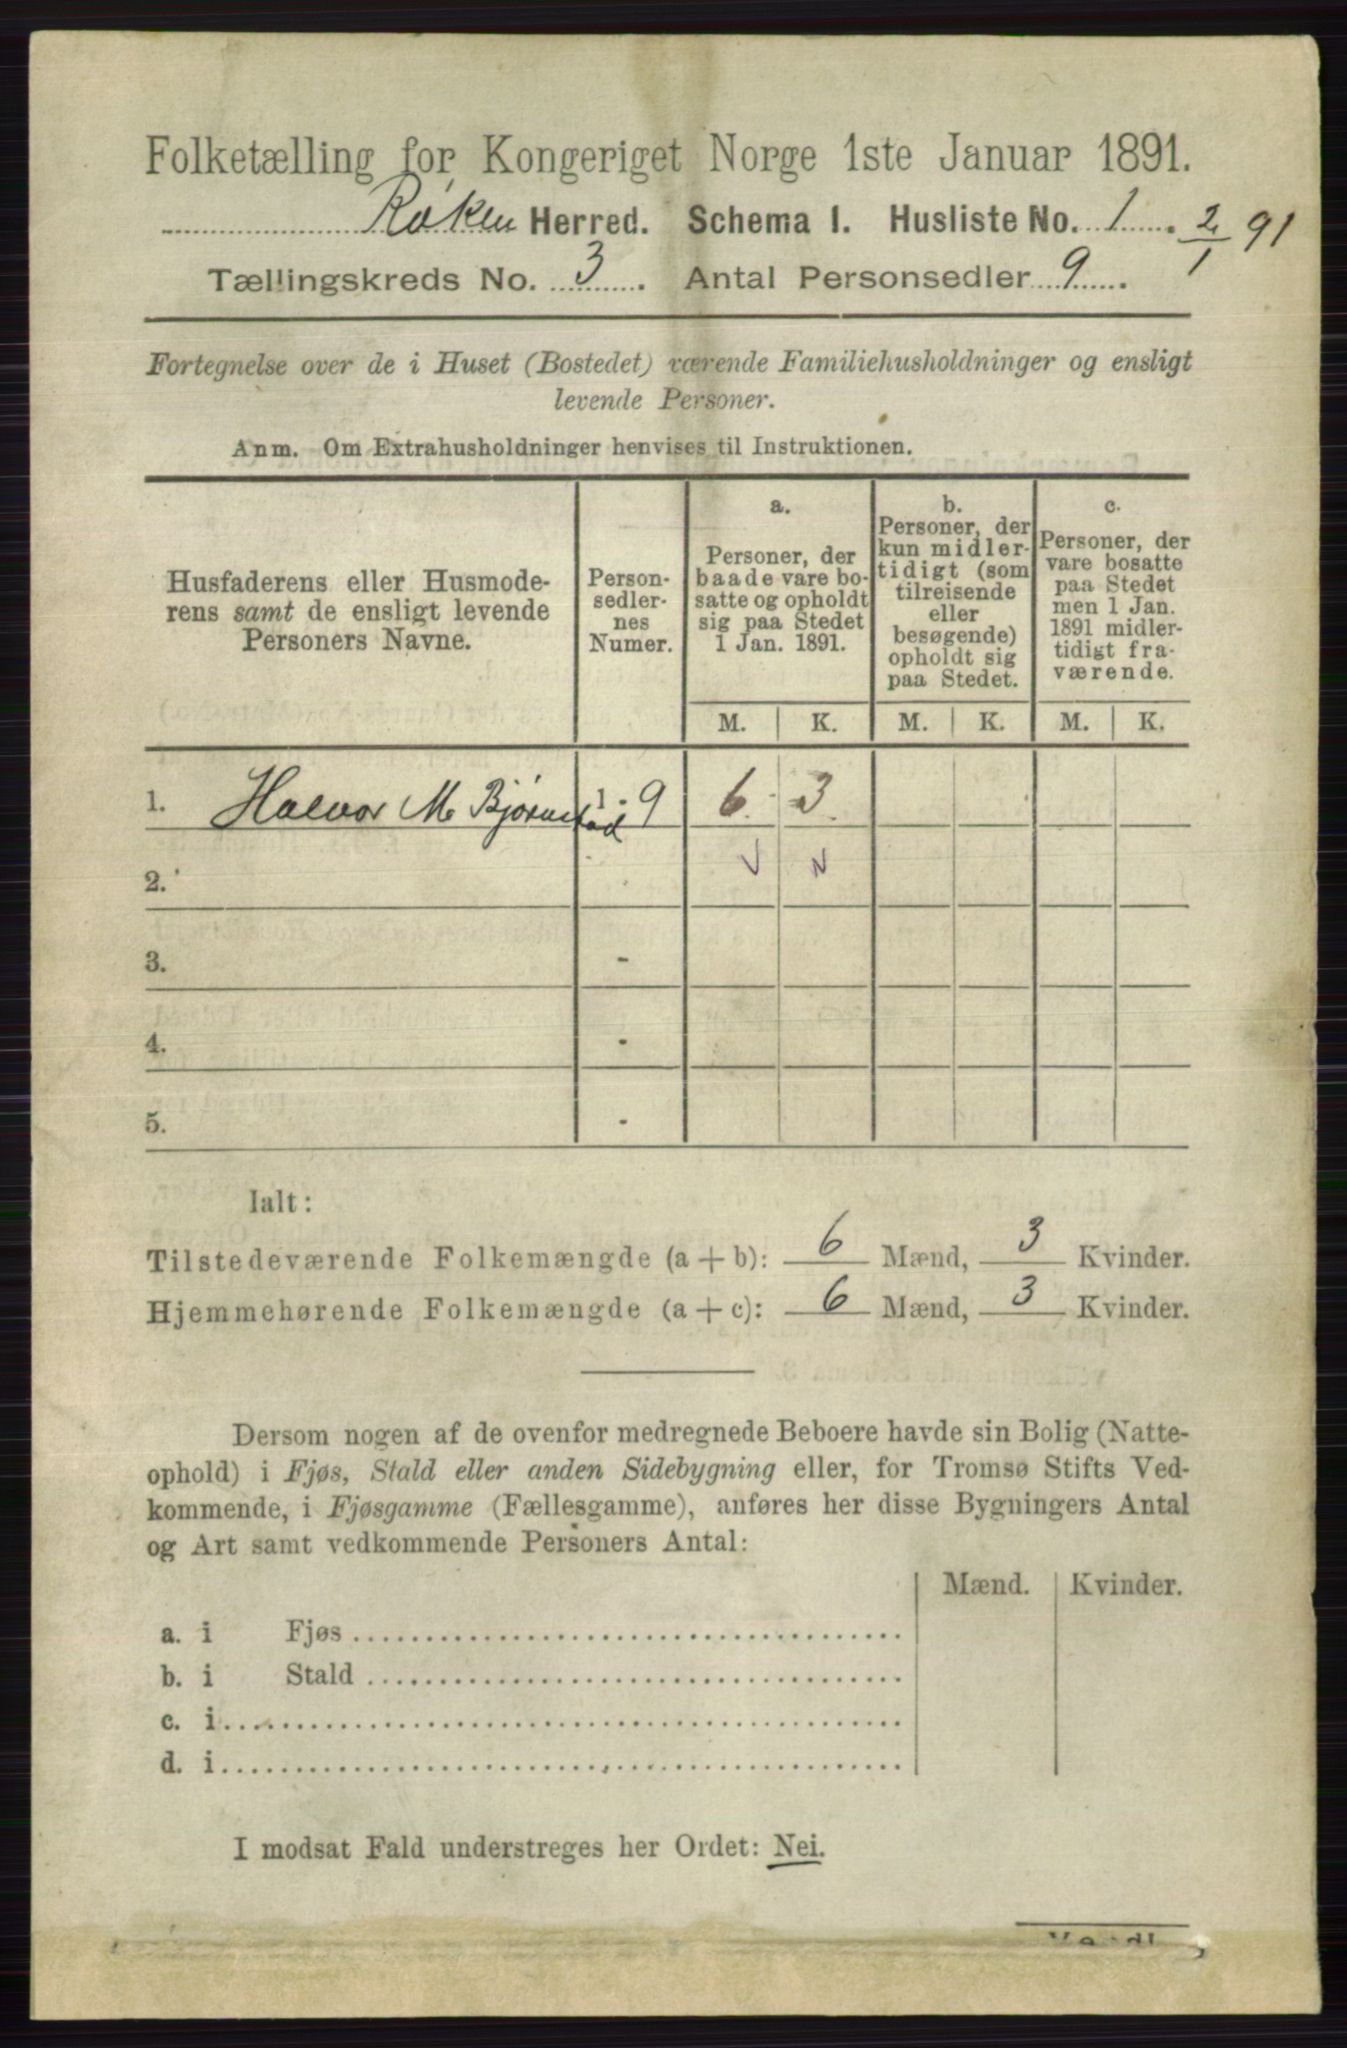 Folketælling for Kongeriget Norge 1ste Januar 1891.
Røken Herred. Schema 1. Husliste No. 1. 2/1 91
Tællingskreds No. 3. Antal Personsedler 9.
Fortegnelse over de i Huset (Bostedet) værende Familiehusholdninger og ensligt
levende Personer.
Anm. Om Extrahusholdninger henvises til Instruktionen.
Husfaderens eller Husmode-
rens samt de ensligt levende
Personers Navne.
Person-
sedler-
nes
Numer.
a.
Personer, der
baade vare bo-
satte og opholdt
sig paa Stedet
1 Jan. 1891.
b.
Personer, der
kun midler-
tidigt (som
tilreisende
eller
besøgende)
opholdt sig
paa Stedet.
c.
Personer, der
vare bosatte
paa Stedet
men 1 Jan.
1891 midler-
tidigt fra-
værende.
M. K. M. K. M. K.
1. Halvor M. Bjørnstad 1 - 9 6 3
2.
3. -
4. -
5. -
Ialt:
Tilstedeværende Folkemængde (a + b): 6 Mænd, 3 Kvinder.
Hjemmehørende Folkemængde (a + c): 6 Mænd, 3 Kvinder.
Dersom nogen af de ovenfor medregnede Beboere havde sin Bolig (Natte-
ophold) i Fjøs, Stald eller anden Sidebygning eller, for Tromsø Stifts Ved-
kommende, i Fjøsgamme (Fællesgamme), anføres her disse Bygningers Antal
og Art samt vedkommende Personers Antal:
Mænd. Kvinder.
a. i Fjøs
b. i Stald
c. i
d. i
I modsat Fald understreges her Ordet: Nei.